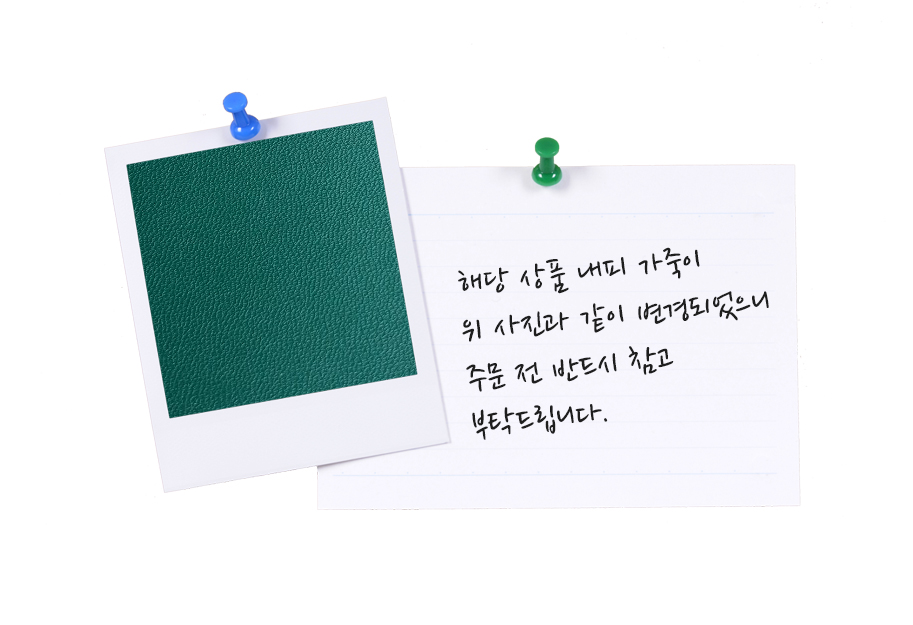 해당 상품 내피 가죽이
위 사진과 같이 변경되었으니
주문 전 반드시 참고
부탁드립니다.